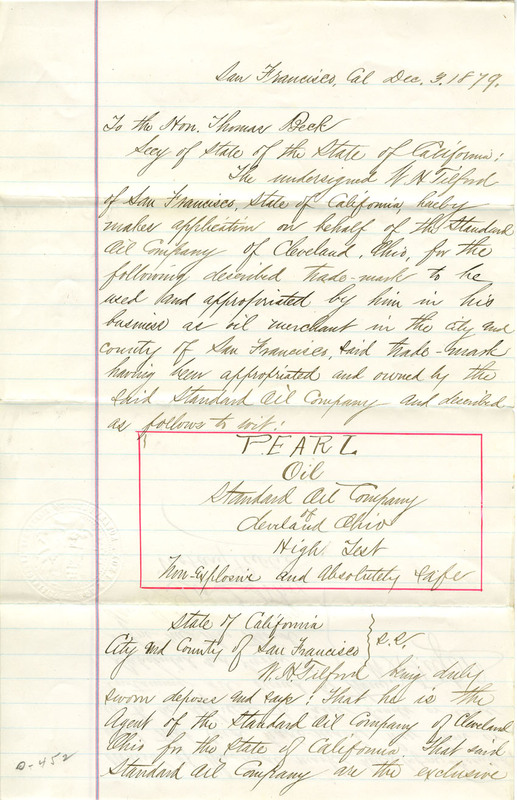 San Francisco, Cal Dec. 3. 1879.
To the Hon. Thomas Beck
Secy of State of the State of California:
The undersigned W. H. Tilford
of San Francisco, State of California, hereby
makes application on behalf of the Standard
Oil Company of Cleveland, Ohio, for the
following described trade-mark to be
used and appropriated by him in his
business as oil merchant in the city and
county of San Francisco, said trade-mark
having been appropriated and owned by the
said Standard Oil Company and described
as follows to wit:
PEARL
Oil
Standard Oil Company
of
Cleveland Ohio
High Test
Non-Explosive and Absolutely Safe
State of California
City and County of San Francisco } S.S.
W. H. Tilford being duly
sworn deposes and says: That he is the
Agent of the Standard Oil Company of Cleveland
Ohio for the State of California That said
Standard Oil Company are the exclusive
D-452